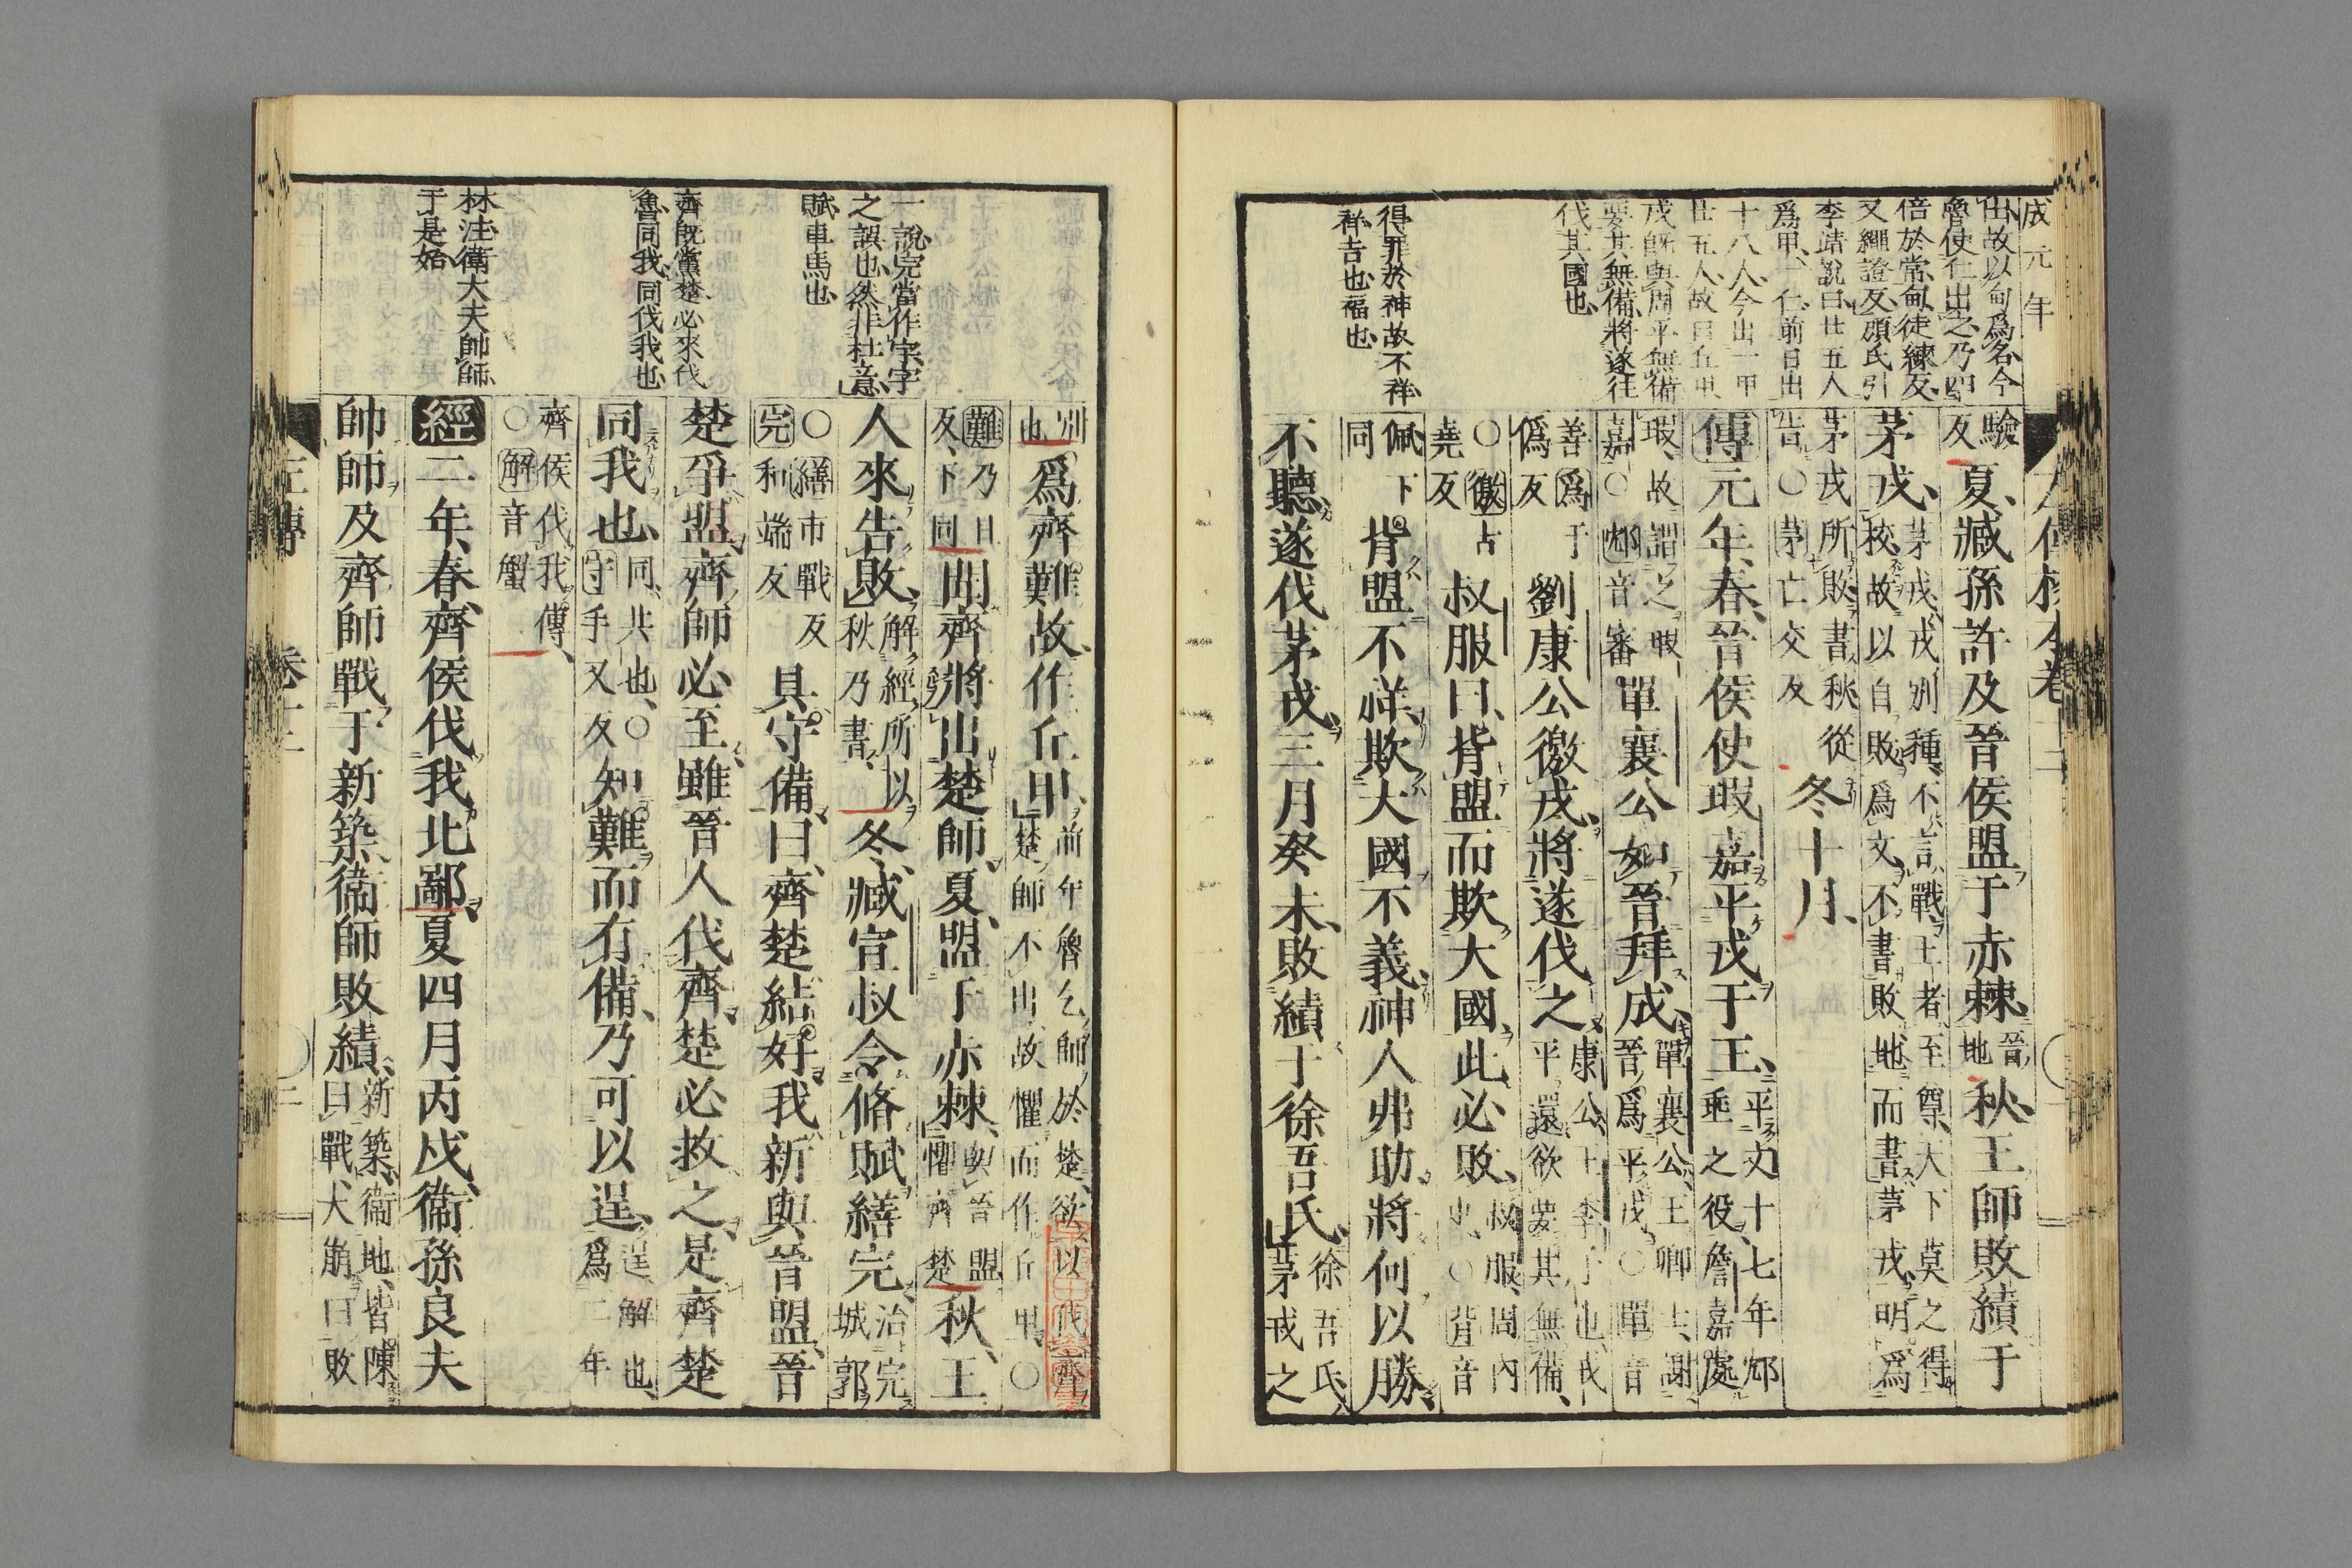 成元年
出故以甸爲名今
魯使仁出之乃四
倍於常甸徒練反
又繩證反顔氏引
李靖說曰廿五人
爲甲一仁前日出
十八人今出一甲
廿五人故曰丘甲
戎旣與周平無備
要其無備將遂往
伐其國也
得罪於神故不祥
祥吉也福也
驗
反
夏臧孫許及晉侯盟于赤棘
晉
地
秋王師敗績于
茅戎
茅戎戎別種不言戰王者至尊天下莫之得
校故以自敗爲文不書敗地而書茅戎明爲
茅戎所敗書秋從
告○茅亡交反
冬十月
傳元年春晉侯使瑕嘉平戎于王
平文十七年邥
垂之役詹嘉處
瑕故謂之瑕
嘉○邥音審
單襄公如晉拜成
單襄公王卿士謝
晉爲平戎○單音
善爲于
僞反
劉康公徼戎將遂伐之
康公王季子也戎
平還欲要其無備
○徼古
堯反
叔服曰背盟而欺大國此必敗
叔服周內
史○背音
佩下
同
背盟不祥欺大國不義神人弗助將何以勝
不聽遂伐茅戎三月癸未敗績于徐吾氏
徐吾氏
茅戎之
一說完當作宗字
之誤也然非杜意
賦車馬也
齊旣黨楚必來伐
魯同我同伐我也
林注衛大夫帥師
于是始
別
也
爲齊難故作丘甲
前年魯乞師於楚欲以伐齊
楚師不出故懼而作丘甲○
難乃旦
反下同
聞齊將出楚師夏盟于赤棘
與晉盟
懼齊楚
秋王
人來告敗
解經所以
秋乃書
冬臧宣叔令脩賦繕完
治完
城郭
○繕市戰反
完和端反
具守備曰齊楚結好我新與晉盟晉
楚爭盟齊師必至雖晉人伐齊楚必救之是齊楚
同我也
同共也○
守手又反
知難而有備乃可以逞
逞解也
爲二年
齊侯伐我傳
○解音蟹
經二年春齊侯伐我北鄙夏四月丙戌衞孫良夫
帥師及齊師戰于新築衞師敗績
新築衞地皆陳
曰戰大崩曰敗